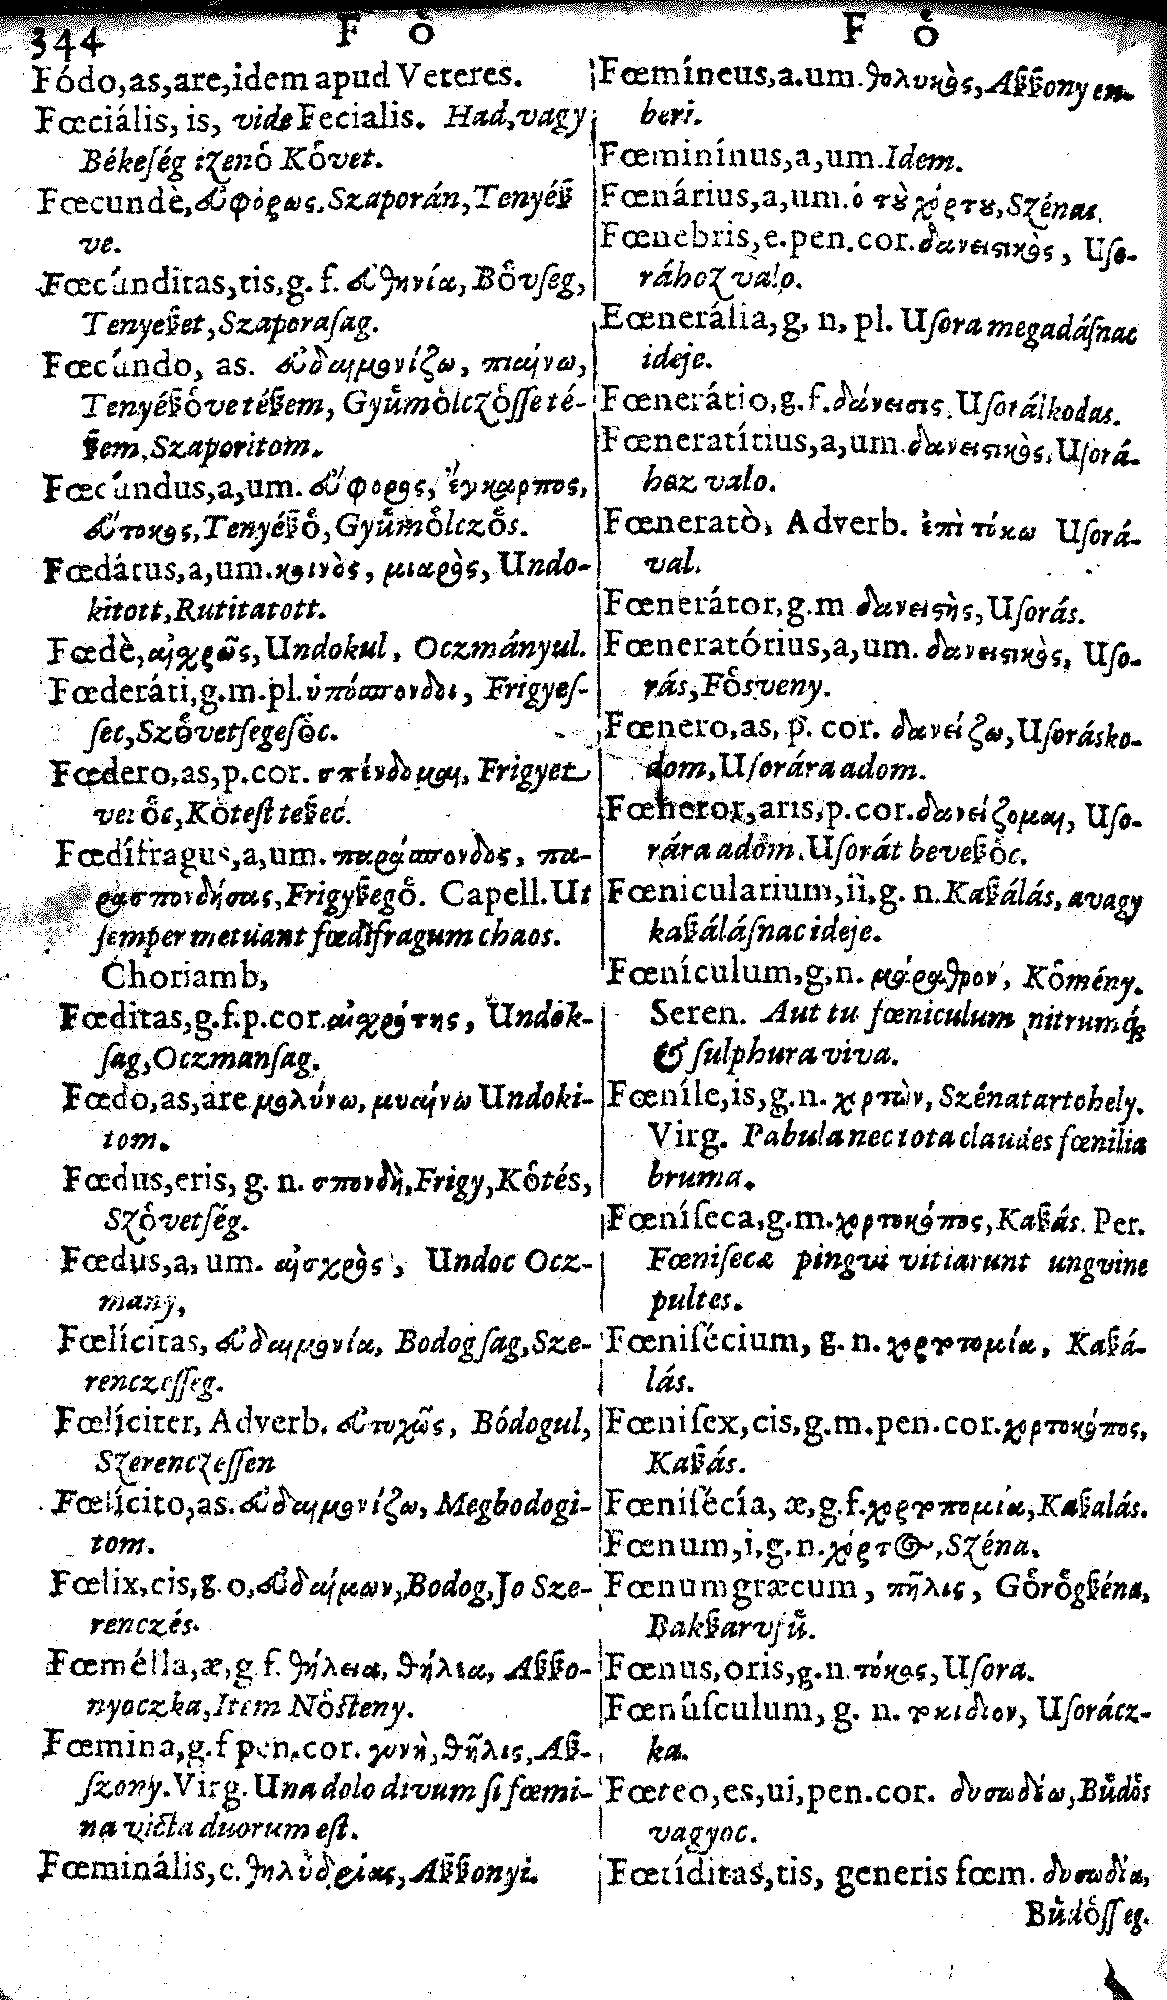 344 F oͤ F oͤ
Fódo,as,are,idem apud Veteres.
Fœciális, is, vide Fecialis. Had,vagy
Békeſég izenoͤ Koͤvet.
Fœcundè,ευφόρως,Szaporán,Tenyéßͤ
ve.
Fœcúnditas,tis,g. f. ευθηνία, Boͤvſeg,
Tenyeßet,Szaporaſag.
Fœcúndo, as. ευδαιμονίζω, πιαίνω,
Tenyéßoͤve téßem, Gyuͤmoͤlczoͤſſe té-
ßem,Szaporitom.
Fœcúndus,a,um. εύφορος, ἔγκαρπος,
εύτοκος,Tenyéßoͤ, Gyuͤmoͤlczoͤs.
Fœdátus,a,um.κοινὸς, μιαρὸς, Undo-
kitott,Rutitatott.
Fœdè,αἰχρῶς,Undokul, Oczmányul.
Fœderáti,g.m.pl.ὑπόσπονδοι, Frigyeſ-
ſec,Szoͤvetſegeſoͤc.
Fœdero,as,p.cor. σπένδομαι, Frigyet
vetoͤc,Koͤteſt teßec.
Fœdífragus,a,um. παράσπονδος, πα-
ρασπονδήσας,Frigyßegoͤ. Capell.Ut
ſemper metuant fœdifragum chaos.
Choriamb,
Fœditas,g.f.p.cor.αἰχρότης, Undok-
ſag,Oczmanſag.
Fœdo,as,are μολύνω, μιαίνω Undoki-
tom.
Fœdus,eris, g. n. σπονδὴ,Frigy,Koͤtés,
Szoͤvetſég.
Fœdus,a, um. αἰσχρὸς, Undoc Ocz-
many,
Fœlícitas, ευδαιμονία, Bodogſag,Sze-
renczeſſeg.
Fœlíciter, Adverb. ευτυχῶς, Bódogul,
Szerenczeſſen
Fœlícito,as. ευδαιμονίζω, Megbodogi-
tom.
Fœlix,cis,g.o,ευδαίμων,Bodog,Jo Sze-
renczés.
Fœmélla,æ,g f. θήλεια, θήλια, Aßßo-
nyoczka,Item Noͤſteny.
Fœmina,g.f pen.cor. γυνὴ,θῆλις, Aß-
ſzony.Virg.Una dolo divum ſi fœmi-
na victa duorum eſt.
Fœminális,c. θηλυδρίας, Aßßonyi.
Fœmíneus,a.um.θολυκὸς, Aßßony em-
beri.
Fœminínus,a,um.Idem.
Fœnárius,a,um.ὁ τȣ χόρτȣ,Szénas.
Fœnebris,e.pen.cor.δανειστικὸς, Uſo-
rához valo.
Eœnerália,g, n. pl. Uſora megadáſnac
ideje.
Fœnerátio,g.f.δάνεισις,Uſorálkodas.
Fœneratítius,a,um.δανειστικὸς,Uſorá-
hoz valo.
Fœneratò, Adverb. ἐπὶ τόκω Uſorá-
val.
Fœnerátor,g.m δανειστὴς,Uſorás.
Fœneratórius,a,um. δανειστικὸς, Uſo-
rás,Foͤsveny.
Fœnero,as, p. cor. δανείζω,Uſorásko-
dom,Uſorára adom.
Fœneror,aris,p.cor.δανείζομαι, Uſo-
rára adom.Uſorát beveßoͤc.
Fœnicularium,ii,g. n.Kaßálás, avagy
kaßáláſnac ideje.
Fœnículum,g,n. μάραθρον, Koͤmény.
Seren. Aut tu fœniculum nitrumq́;
& ſulphura viva.
Fœníle,is,g.n. χορτὼν, Szénatartohely.
Virg. Pabula nec tota claudes fœnilia
bruma.
Fœníſeca,g.m.χορτοκόπος,Kaßás. Per.
Fœniſecæ pingvi vitiarunt ungvine
pultes.
Fœniſécium, g. n. χορτοτομία, Kaßá-
lás.
Fœniſex,cis,g.m.pen.cor.χορτοκόπος,
Kaßás.
Fœniſécía, æ,g.f.χορτοτομία,Kaßalás.
Fœnum,i,g.n.χόρτος,Széna.
Fœnumgræcum, τῆλις, Goͤroͤgßéna,
Bakßarvſuͤ.
Fœnus,oris,g.n τόκος,Uſora.
Fœnúſculum, g. n. τοκίδιον, Uſorácz-
ka.
Fœteo,es,ui,pen.cor. δυσωδέω,Buͤdoͤs
vagyoc.
Fœtíditas,tis, generis fœm. δυσωδία,
Buͤdoͤſſeg.